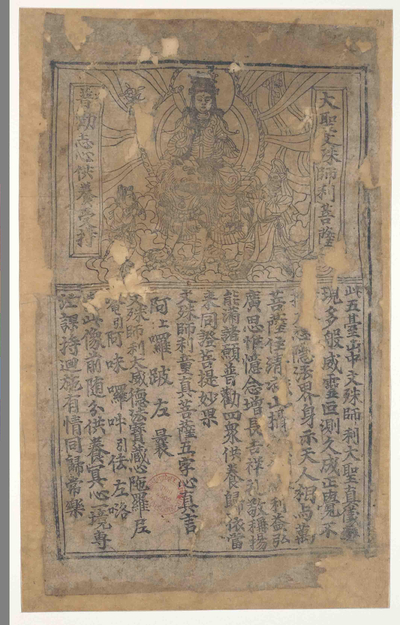 大聖文殊師利菩薩
普勸志心供養受持
此五臺山中文殊師利大聖真儀變
現多般威靈叵測久成正覺不
隱法界身示天人相與萬
菩薩住清涼山攝利益弘
廣思惟憶念增長吉祥禮敬稱揚
能滿諸願普勸四眾供養歸依當
來同證菩提妙果
文殊師利童真菩薩五字心真言
阿上囉跛左曩
文殊師利大威德法寶藏心陀羅尼
唵引阿味囉吽引佉左咯
此像前隨分供養冥心一境專
注課持迴施有情同歸常樂